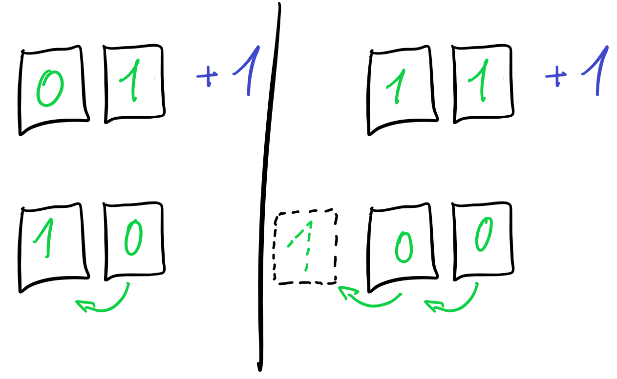 0 1 +1
1 0
1 1 +1
1 0 0